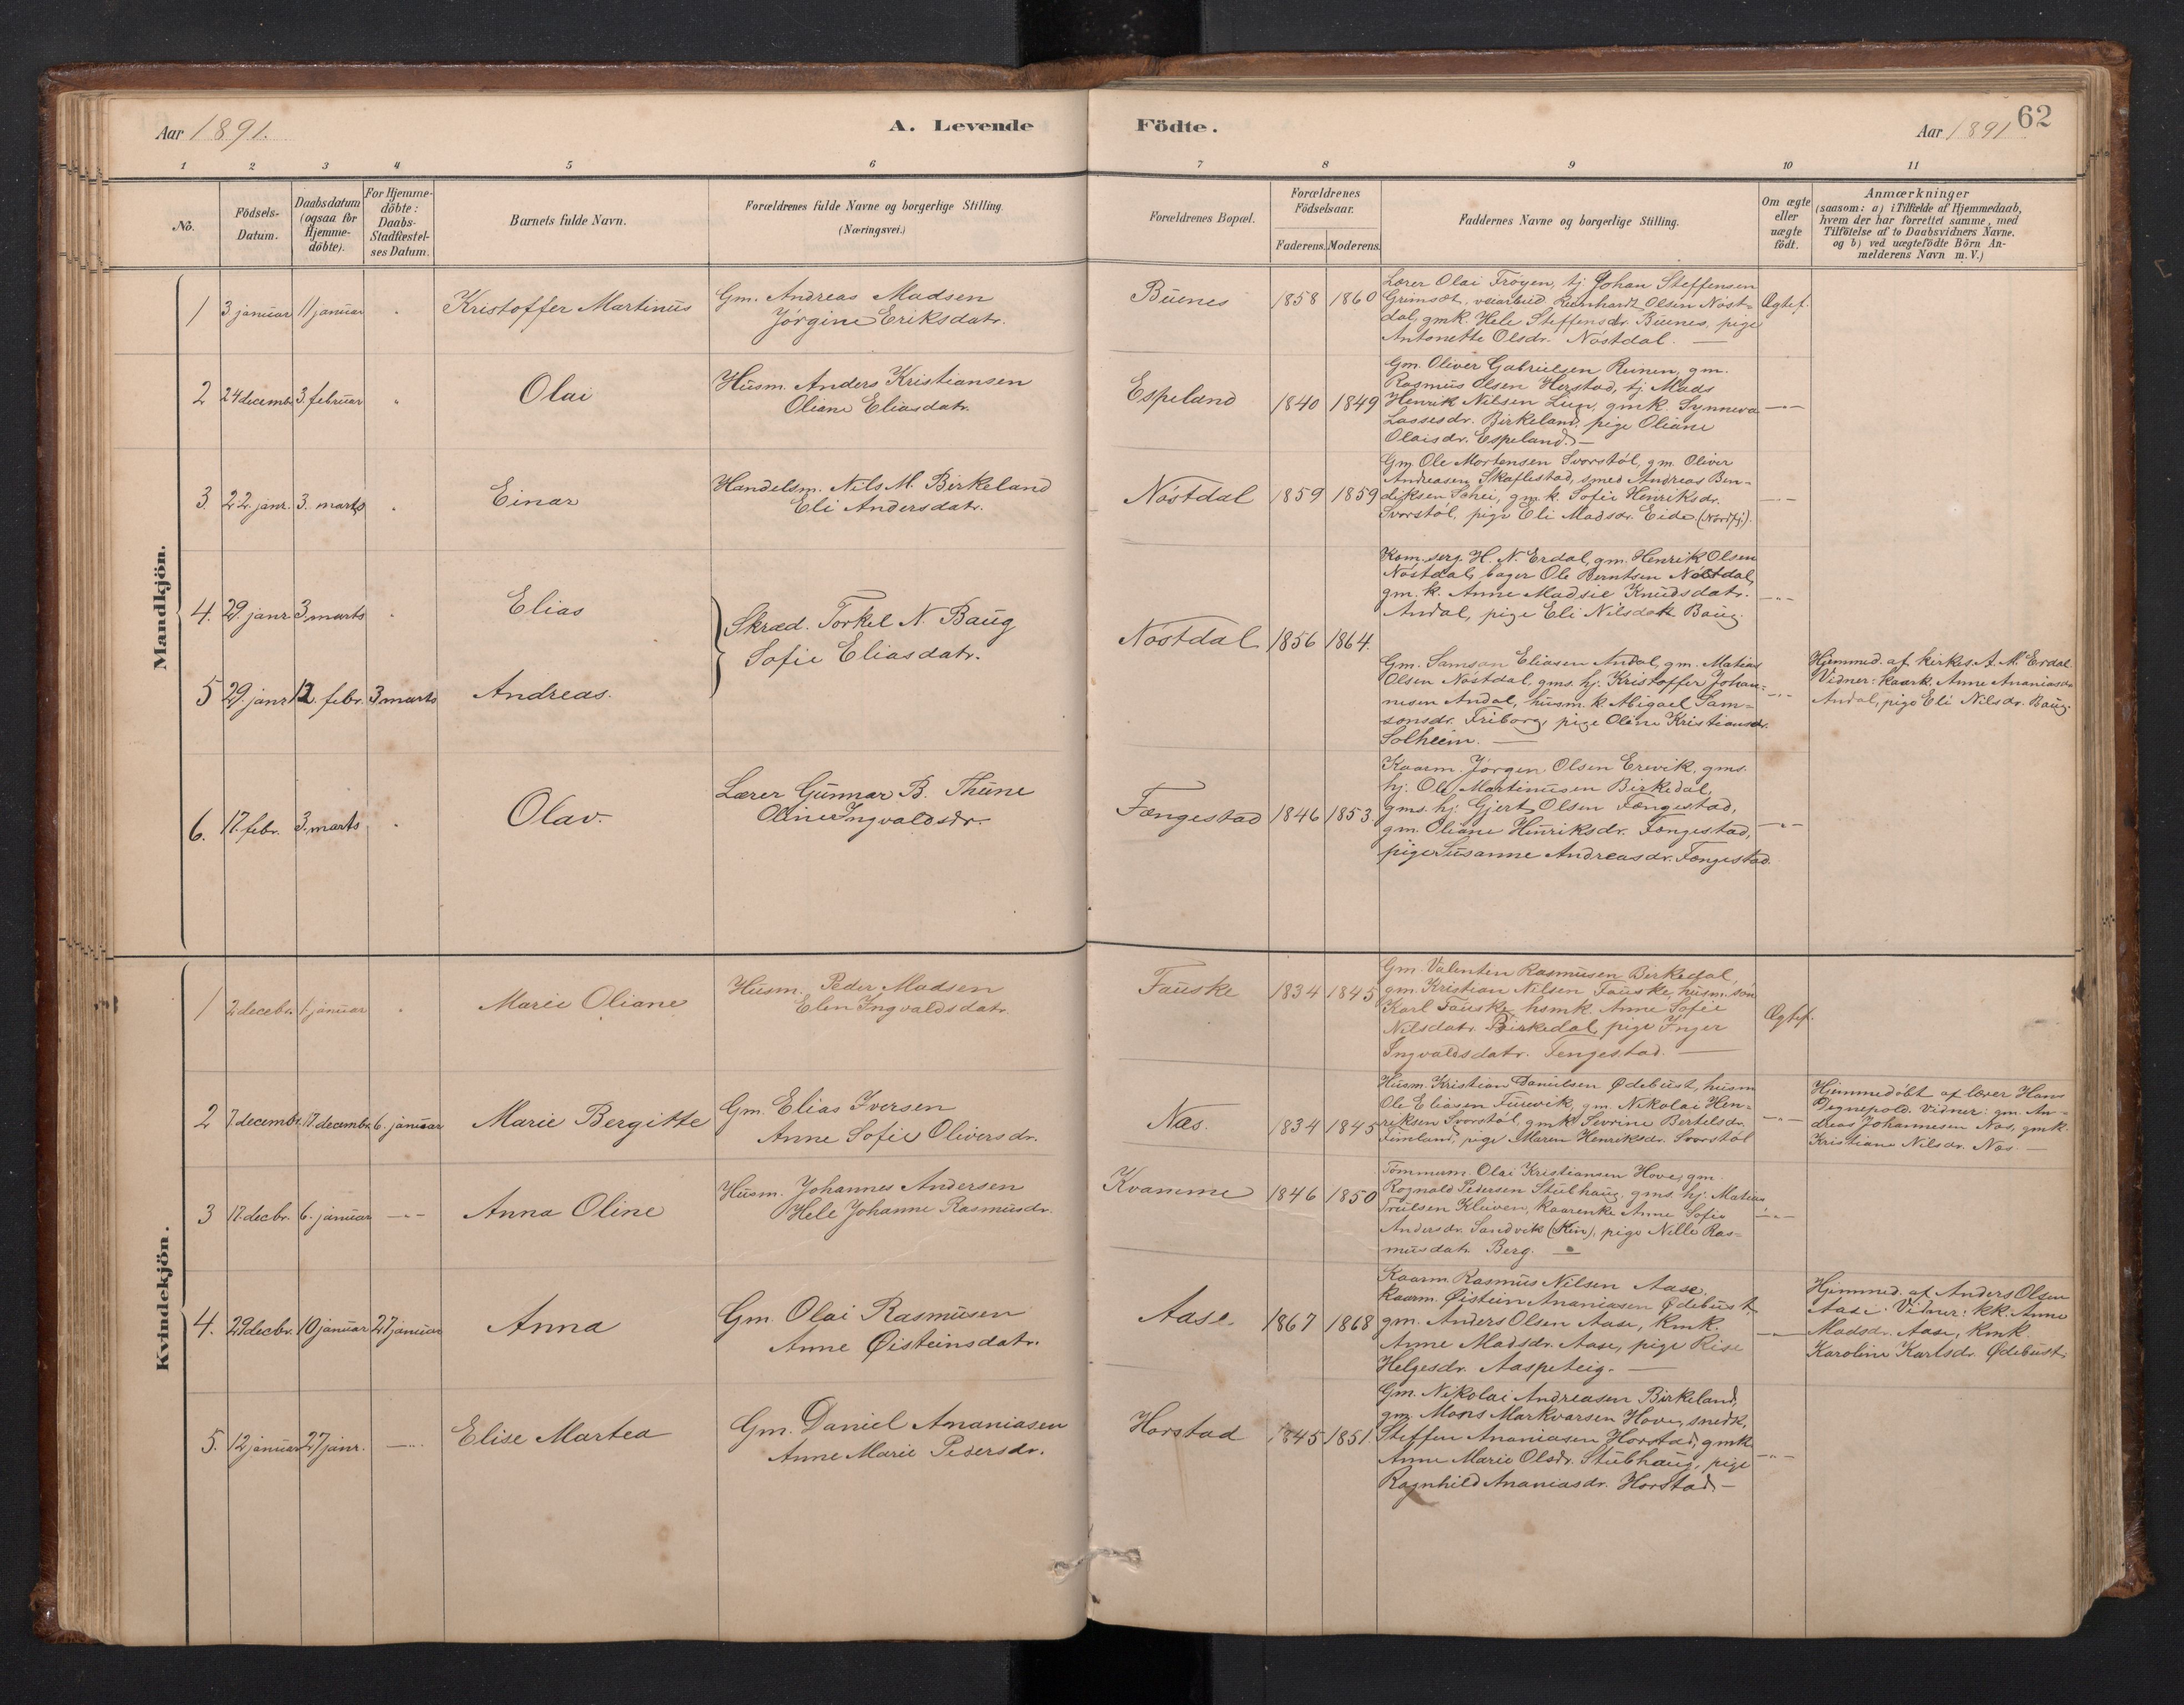 Aar 1891.
A. Levende
Födte.
Aar 1891
62
1 2 3 4 5 6 7 8 9 10 11
No.
Födsels-
Datum.
Daabsdatum
(ogsaa för
Hjemme-
döbte).
For Hjemme-
döbte:
Daabs-
Stadfæstel-
ses Datum.
Barnets fulde Navn.
Forældrenes fulde Navne og borgerlige Stilling.
(Næringsvei.)
Forældrenes Bopæl.
Forældrenes
Födselsaar.
Faderens. Moderens.
Faddernes Navne og borgerlige Stilling.
Om ægte
eller
uægte
födt.
Anmærkninger
(saasom: a) i Tilfælde af Hjemmedaab,
hvem der har forrettet samme, med
Tilföielse af to Daabsvidners Navne.
og b) ved uægtefödte Börn An-
melderens Navn m. V.)
Mandkjön.
1 3 januar 11 januar " Kristoffer Martinus
Gm. Andreas Madsen
Jörgine Eriksdatr.
Buenes 1858 1860
Lærer Olai Fröyen, tj. Johan Steffensen
Grimsæt, veiarbeid. Leonhardt Olsen Nöst-
dal, gmk. Hele Steffensdr. Buenes, pige
Antonette Olsdr. Nöstdal. —
Ægtef.
2 24 decembr 3. februar " Olai
Husm. Anders Kristiansen
Oliane Eliasdatr.
Espeland 1840 1849
Gm. Oliver Gabrielsen Runen, gm.
Rasmus Olsen Horstad, tj. Mads
Henrik Nilsen Lien, gmk. Synneva
Lassesdr. Birkeland, pige Oliane
Olaisdr. Espeland. —
—"—
3. 22. janr. 3. marts " Einar
Handelsm. Nils M. Birkeland
Eli Andersdatr.
Nöstdal 1859 1859
Gm. Ole Mortensen Svorstöl, gm. Oliver
Andreasen Skaflestad, smed Andreas Ben-
diksen Schei, gm.k. Sofie Henriksdr.
Svorstöl, pige Eli Madsdr. Eide (Nordfj.).
—"—
4. 29. janr 3. marts " Elias
5 29. janr 12. febr. 3 marts Andreas.
Skræd. Torkel N. Baug
Sofie Eliasdatr.
Nöstdal 1856 1864.
Kom.serg. H. N. Erdal, gm. Henrik Olsen
Nöstdal, bager Ole Berntsen Nöstdal,
gm. k. Anne Madsie Knudsdatr.
Andal, pige Eli Nilsdatr Baug.
—"—
Gm. Samson Eliasen Andal, gm. Matias
Olsen Nöstdal, gms. hj. Kristoffer Johan-
nesen Andal, husm. k. Abigael Sam-
sonsdr. Friborg, pige Oline Kristiansdr.
Solheim. —
—"—
Hjemmed. af kirkes. A. M. Erdal.
Vidner: kaark. Anne Ananiasdr.
Andal, pige Eli Nilsdr. Baug.
6. 17. febr. 3. marts " Olav.
Lærer Gunnar B. Thune
Oline Ingvaldsdr.
Fængestad 1846 1853.
Kaarm. Jörgen Olsen Erevik, gms.
hj. Ole Martinusen Birkedal,
gms. hj. Gjert Olsen Fængestad,
gm. Oliane Henriksdr. Fængestad,
pige Susanne Andreasdr. Fængestad.
—"—
Kvindekjön.
1 2 decebr. 1 januar " Marie Oliane
Husm. Peder Madsen
Elen Ingvaldsdatr.
Fauske 1834 1845
Gm. Valenten Rasmusen Birkedal,
gm. Kristian Nilsen Fauske, husm. sön
Karl Fauske, hsmk. Anne Sofie
Nilsdatr. Birkedal, pige Inger
Ingvaldsdatr. Fengestad. —
Ægtef.
2 7 decembr. 17. decembr 6. januar Marie Bergitte
Gm. Elias Iversen
Anne Sofie Oliversdr.
Næs. 1834 1845
Husm. Kristian Danielsen Ødebust, husm
Ole Eliasen Furevik, gm. Nikolai Hen-
riksen Svorstöl, gmk. Sevrine Bertelsdr.
Timland, pige Maren Henriksdr. Svorstöl
—"—
Hjemmedöbt af lærer Hans
Degnepold. Vidner: gm. An-
dreas Johannesen Næs, gmk.
Kristiane Nilsdr. Næs. —
3 17. decbr. 6. januar —"— Anna Oline
Husm. Johannes Andersen
Hele Johanne Rasmusdr.
Kvamme 1846 1850
Tömmerm. Olai Kristiansen Hove, gm.
Rognald Pedersen Stubhaug, gms. hj. Matias
Truelsen Kleiven, kaarenke Anne Sofie
Andersdr. Sandvik (Kin), pige Nille Ras-
musdatr. Berg. —
—"—
4. 29 decbr. 10 januar 27 januar Anna
Gm. Olai Rasmusen
Anne Øisteinsdatr.
Aase 1867 1868
Kaarm. Rasmus Nilsen Aase,
kaarm. Øistein Ananiasen Ødebust,
gm. Anders Olsen Aase, kmk.
Anne Madsdr. Aase, pige Rise
Helgesdr. Aaspeteig. —
—"—
Hjemmed. af Anders Olsen
Aase. Vidner: kk. Anne
Madsdr. Aase, kmk.
Karoline Karlsdr. Ødebust.
5. 12 januar 27 janr. —"— Elise Martea
Gm. Daniel Ananiasen
Anne Marie Pedersdr.
Horstad 1845 1851.
Gm. Nikolai Andreasen Birkeland,
gm. Mons Markvarsen Hove, snedk.
Steffen Ananiasen Horstad, gmk
Anne Marie Olsdr. Stubhaug, pige
Ragnhild Ananiasdr. Horstad. —
—"—